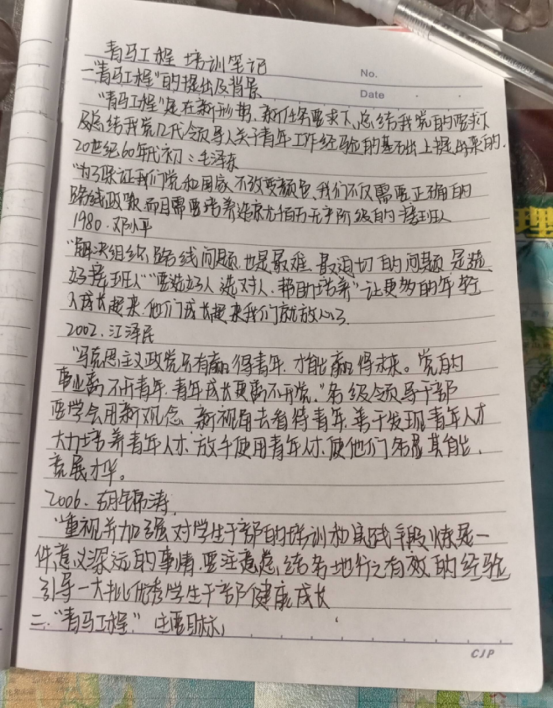 青马工程 培训笔记
No.
一"青马工程"的提出及背景
Date
"青马工程"是在新形势、新任务要求下、总结我党的要求下
及总结我党几代领导人关于青年工作经验的基础上提出来的.
20世纪60年代初:毛泽东
"为了保证我们党和国家不改变颜色、我们不仅需要正确的
路线政策、而且需要培养造就千百万无产阶级的接班人
1980.邓小平
"解决组织路线问题、也是最难、最迫切的问题是选
好接班人""要选好人 选对人、帮助培养"让更多的年轻
人成长起来、他们成长起来我们就放心了.
2002.江泽民
"马克思主义政党只有赢得青年、才能赢得未来。党的
事业离不开青年、青年成长更离不开党."各级领导干部
要学会用新观念、新视角去看待青年、善于发现青年人才
大力培养青年人才、放手使用青年人才、使他们各显其能、
竞展才华。
2006.胡锦涛
"重视并加强对学生干部的培训和实践 是一
件意义深远的事情、要注意总结各地行之有效的经验
引导一大批优秀学生干部健康成长
二."青马工程" 主要目标,
CJP